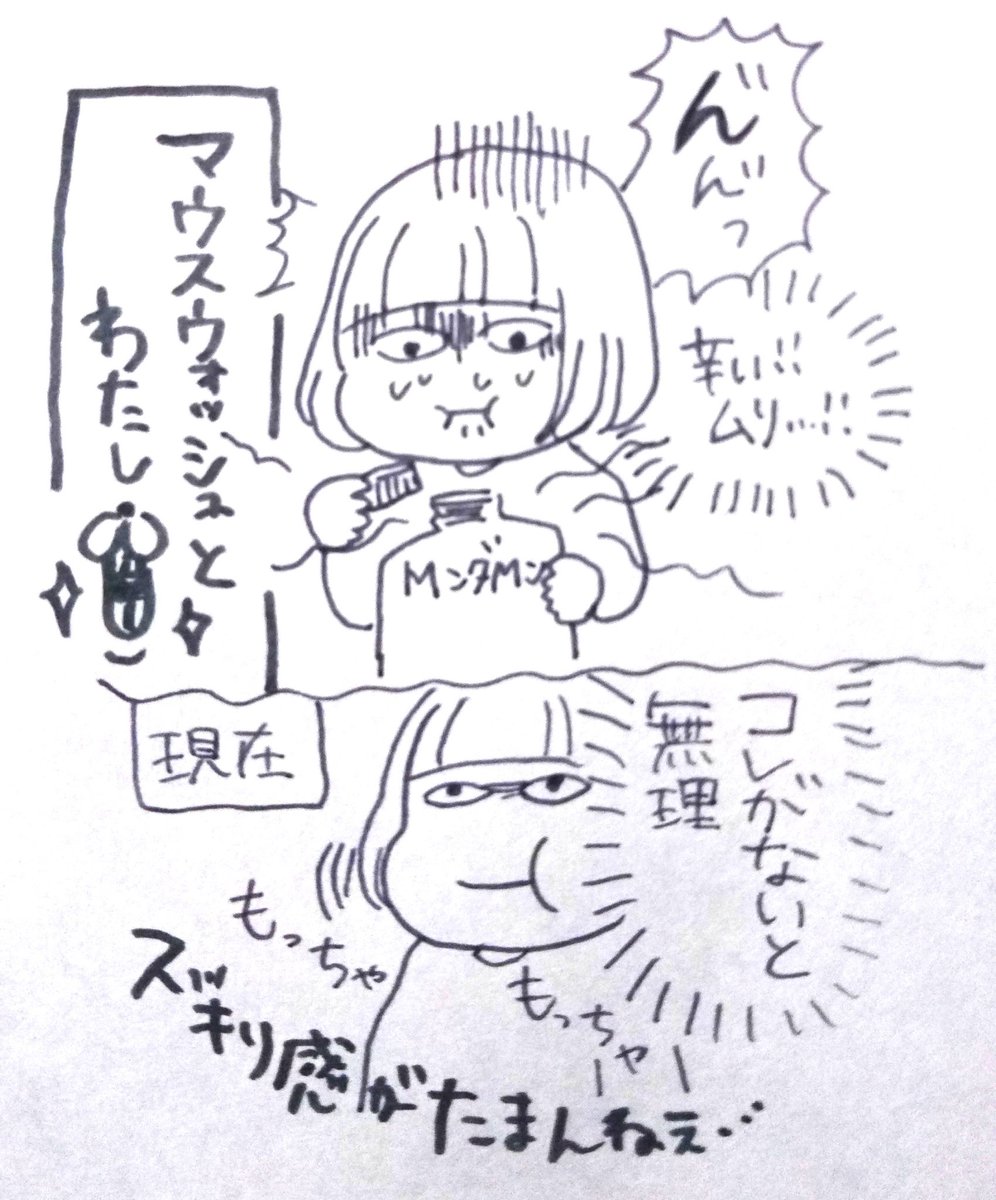 マウスウォッシュと
わたし
ん゛ん゛っ
辛い!!
ムリ…!!
MンダMン
現在
コレがないと
無理
もっちゃ
もっちゃ
スッキリ感がたまんねえ…